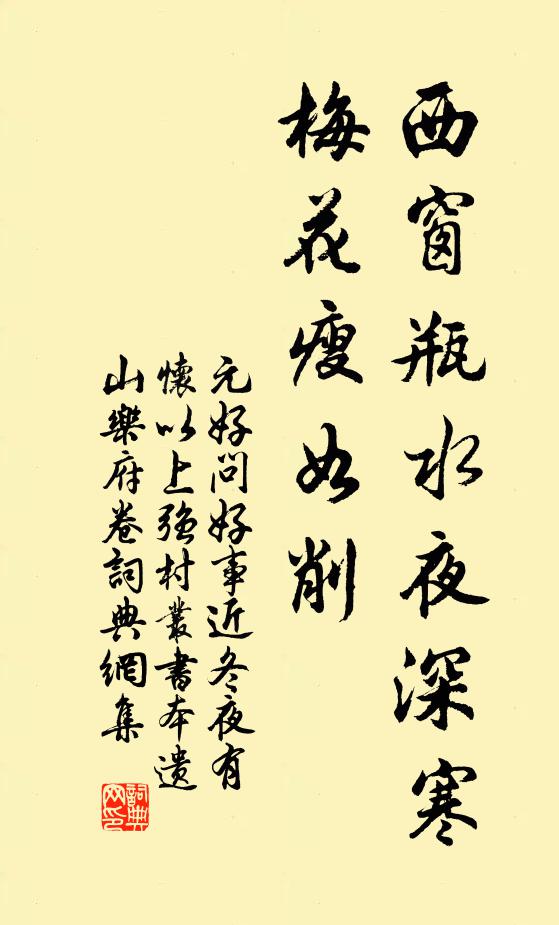 西窗瓶水夜深寒
梅花瘦如削
元好问好事近冬夜有
懷以上强村叢書本遗
山樂府卷詞典網集
詞典
网印